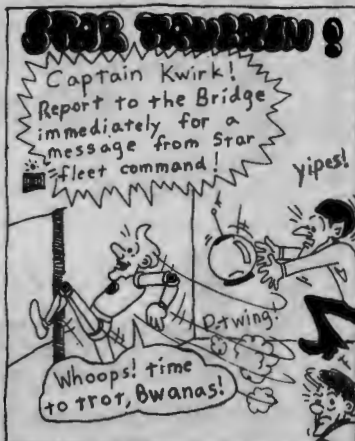 STAR
!
Captain Kwirk!
Report to the Bridge
immediately for a
message from Star
fleet command!
yipes!
P-twing!
Whoops! time
to trot, Bwanas!